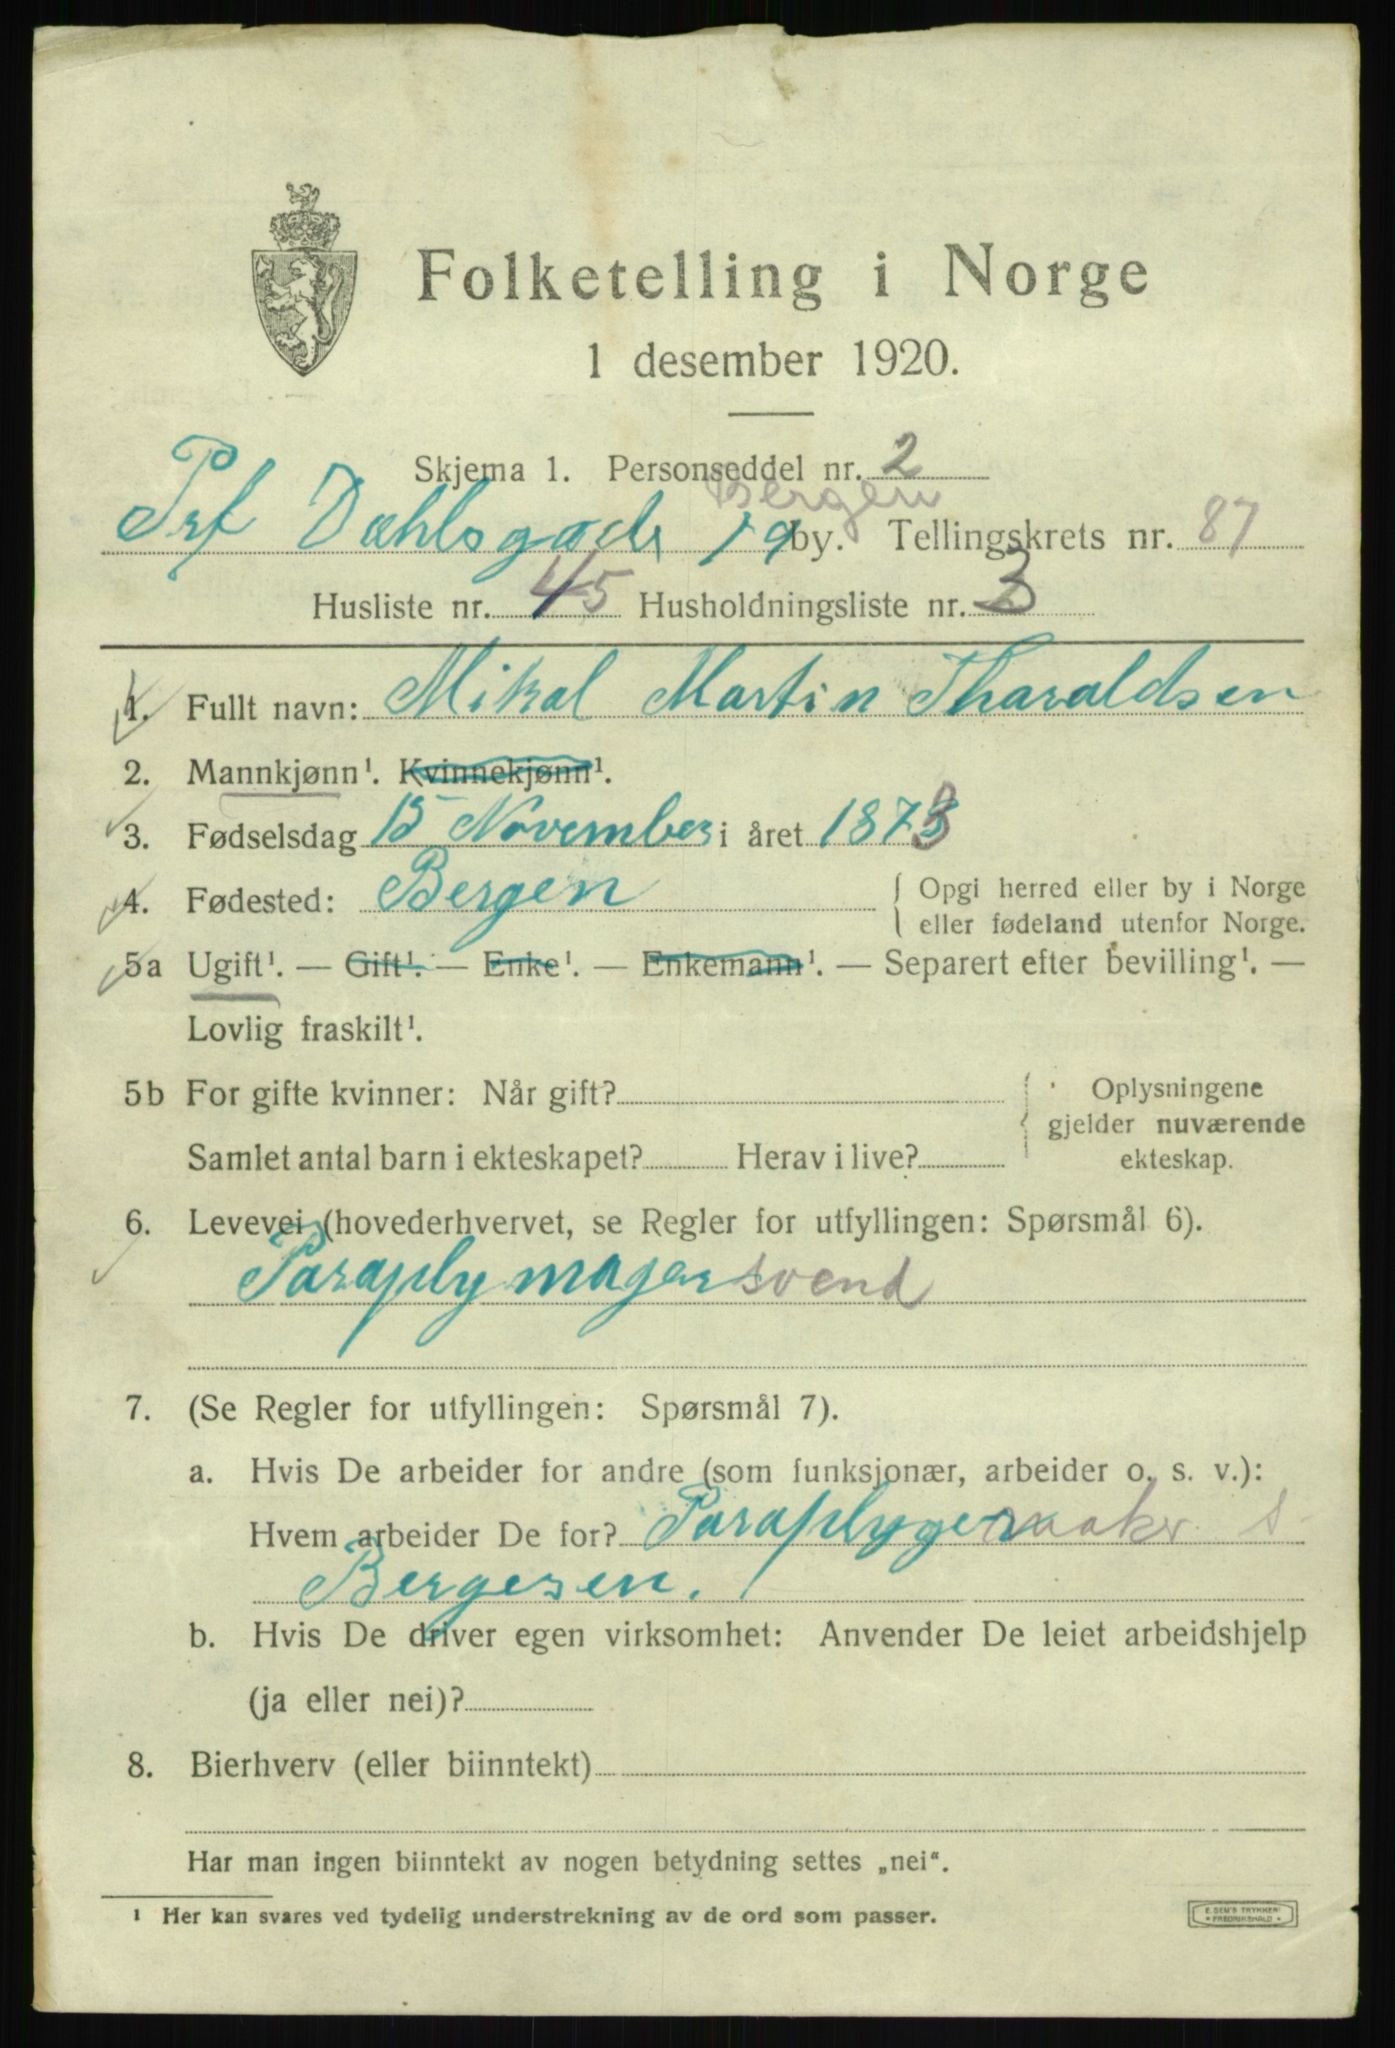 Folketelling i Norge
1 desember 1920.
Skjema 1. Personseddel nr. 2
Bergen
Prf Dahlsgade 19 by. Tellingskrets nr. 87
Husliste nr. 45 Husholdningsliste nr. 3
1. Fullt navn: Mikal Martin Tharaldsen
2. Mannkjønn¹. Kvinnekjønn¹.
3. Fødselsdag 15 November i året 1873
4. Fødested: Bergen { Opgi herred eller by i Norge
eller fødeland utenfor Norge.
5a Ugift¹. — Gift¹. — Enke¹. — Enkemann¹. — Separert efter bevilling¹. —
Lovlig fraskilt¹.
5b For gifte kvinner: Når gift? { Oplysningene
gjelder nuværende
Samlet antal barn i ekteskapet? Herav i live? ekteskap.
6. Levevei (hovederhvervet, se Regler for utfyllingen: Spørsmål 6).
Paraplymagersvend
7. (Se Regler for utfyllingen: Spørsmål 7).
a. Hvis De arbeider for andre (som funksjonær, arbeider o. s. v.):
Hvem arbeider De for?
Bergesen.
b. Hvis De driver egen virksomhet: Anvender De leiet arbeidshjelp
(ja eller nei)?
8. Bierhverv (eller biinntekt)
Har man ingen biinntekt av nogen betydning settes „nei“.
¹ Her kan svares ved tydelig understrekning av de ord som passer.
E. SEM'S TRYKKERI
* FREDRIKSHALD *